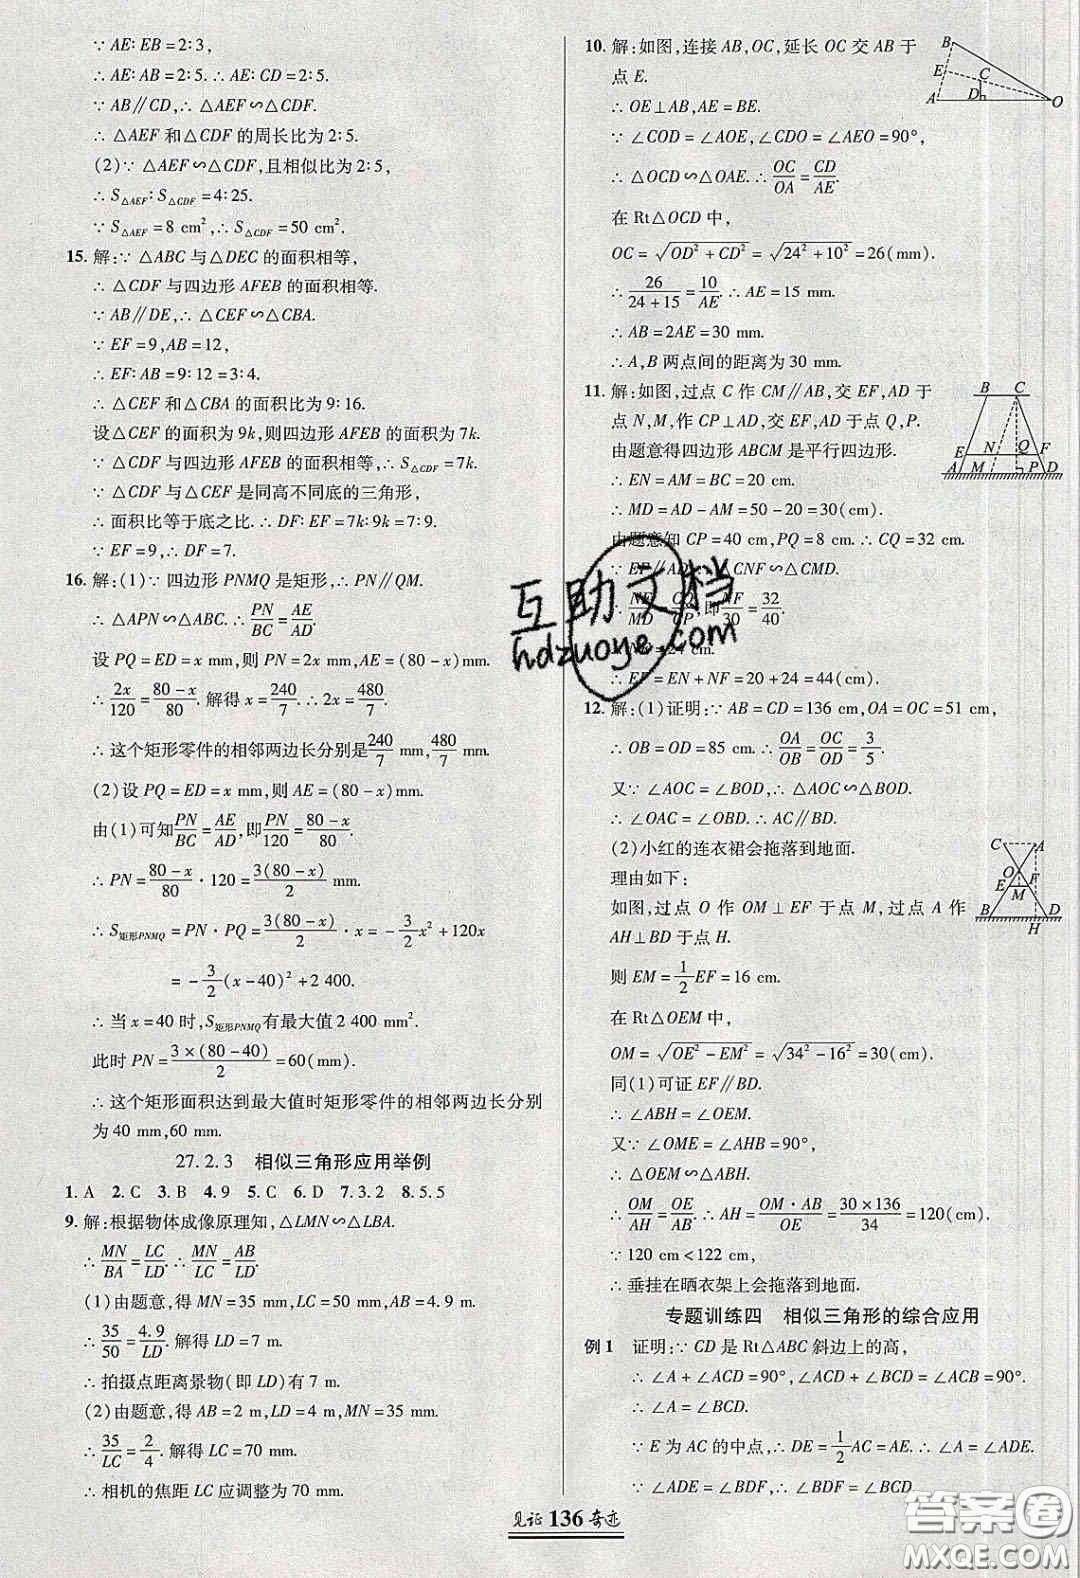 ∵AE∶EB=2∶3,
∴AE∶AB=2∶5.∴AE∶CD=2∶5.
∵AB∥CD,∴△AEF∽△CDF.
∴△AEF和△CDF的周长比为2∶5.
(2)∵△AEF∽△CDF,且相似比为2∶5,
∴S△AEF∶S△CDF=4∶25.
∵S△AEF=8 cm²,∴S△CDF=50 cm².
15. 解:∵△ABC与△DEC的面积相等,
∴△CDF与四边形AFEB的面积相等.
∵AB∥DE,∴△CEF∽△CBA.
∵EF=9,AB=12,
∴EF∶AB=9∶12=3∶4.
∴△CEF和△CBA的面积比为9∶16.
设△CEF的面积为9k,则四边形AFEB的面积为7k.
∵△CDF与四边形AFEB的面积相等,∴S△CDF=7k.
∵△CDF与△CEF是同高不同底的三角形,
∴面积比等于底之比.∴DF∶EF=7k∶9k=7∶9.
∵EF=9,∴DF=7.
16. 解:(1)∵四边形PNMQ是矩形,∴PN∥QM.
∴△APN∽△ABC.∴PN/BC=AE/AD.
设PQ=ED=x mm,则PN=2x mm,AE=(80-x)mm.
∴2x/120=(80-x)/80.解得x=240/7.∴2x=480/7.
∴这个矩形零件的相邻两边长分别是240/7 mm,480/7 mm.
(2)设PQ=ED=x mm,则AE=(80-x)mm.
由(1)可知PN/BC=AE/AD,即PN/120=(80-x)/80.
∴PN=(80-x)/80·120=3(80-x)/2 mm.
∴S矩形PNMQ=PN·PQ=3(80-x)/2·x=-3/2x²+120x
=-3/2(x-40)²+2 400.
∴当x=40时,S矩形PNMQ有最大值2 400 mm².
此时PN=3×(80-40)/2=60(mm).
∴这个矩形面积达到最大值时矩形零件的相邻两边长分别
为40 mm,60 mm.
27.2.3 相似三角形应用举例
1. A 2. C 3. B 4. 9 5. C 6. D 7. 3.2 8. 5.5
9. 解:根据物体成像原理知,△LMN∽△LBA.
∴MN/BA=LC/LD.∴MN/LC=AB/LD.
(1)由题意,得MN=35 mm,LC=50 mm,AB=4.9 m.
∴35/50=4.9/LD.解得LD=7 m.
∴拍摄点距离景物(即LD)有7 m.
(2)由题意,得AB=2 m,LD=4 m,MN=35 mm.
∴35/LC=2/4.解得LC=70 mm.
∴相机的焦距LC应调整为70 mm.
10. 解:如图,连接AB,OC,延长OC交AB于
点E.
∴OE⊥AB,AE=BE.
∵∠COD=∠AOE,∠CDO=∠AEO=90°,
∴△OCD∽△OAE.∴OC/OA=CD/AE.
在Rt△OCD中,
OC=√(OD²+CD²)=√(24²+10²)=26(mm).
∴26/(24+15)=10/AE.∴AE=15 mm.
∴AB=2AE=30 mm.
∴A,B两点间的距离为30 mm.
B
E
C
A
D
O
11. 解:如图,过点C作CM∥AB,交EF,AD于
点N,M,作CP⊥AD,交EF,AD于点Q,P.
由题意得四边形ABCM是平行四边形.
∴EN=AM=BC=20 cm.
∴MD=AD-AM=50-20=30(cm).
由题意知CP=40 cm,PQ=8 cm.∴CQ=32 cm.
∵EF∥AD,∴△CNF∽△CMD.
∴NF/MD=CQ/CP,即NF/30=32/40.
∴NF=24 cm.
∴EF=EN+NF=20+24=44(cm).
B C
E N Q F
A M P D
12. 解:(1)证明:∵AB=CD=136 cm,OA=OC=51 cm,
∴OB=OD=85 cm.∴OA/OB=OC/OD=3/5.
又∵∠AOC=∠BOD,∴△AOC∽△BOD.
∴∠OAC=∠OBD.∴AC∥BD.
(2)小红的连衣裙会拖落到地面.
理由如下:
如图,过点O作OM⊥EF于点M,过点A作
AH⊥BD于点H.
则EM=1/2EF=16 cm.
在Rt△OEM中,
OM=√(OE²-EM²)=√(34²-16²)=30(cm).
同(1)可证EF∥BD.
∴∠ABH=∠OEM.
又∵∠OME=∠AHB=90°,
∴△OEM∽△ABH.
∴OM/AH=OE/AB.∴AH=OM·AB/OE=30×136/34=120(cm).
∵120 cm<122 cm,
∴垂挂在晒衣架上会拖落到地面.
C A
O
E F
M
B D
H
专题训练四 相似三角形的综合应用
例1 证明:∵CD是Rt△ABC斜边上的高,
∴∠A+∠ACD=90°,∠ACD+∠BCD=90°.
∴∠A=∠BCD.
∵E为AC的中点,∴DE=1/2AC=AE.∴∠A=∠ADE.
∵∠ADE=∠BDF,∴∠BCD=∠BDF.
见证136奇迹
互助文档
hdzuoye.com
答案圈
MXQE.COM